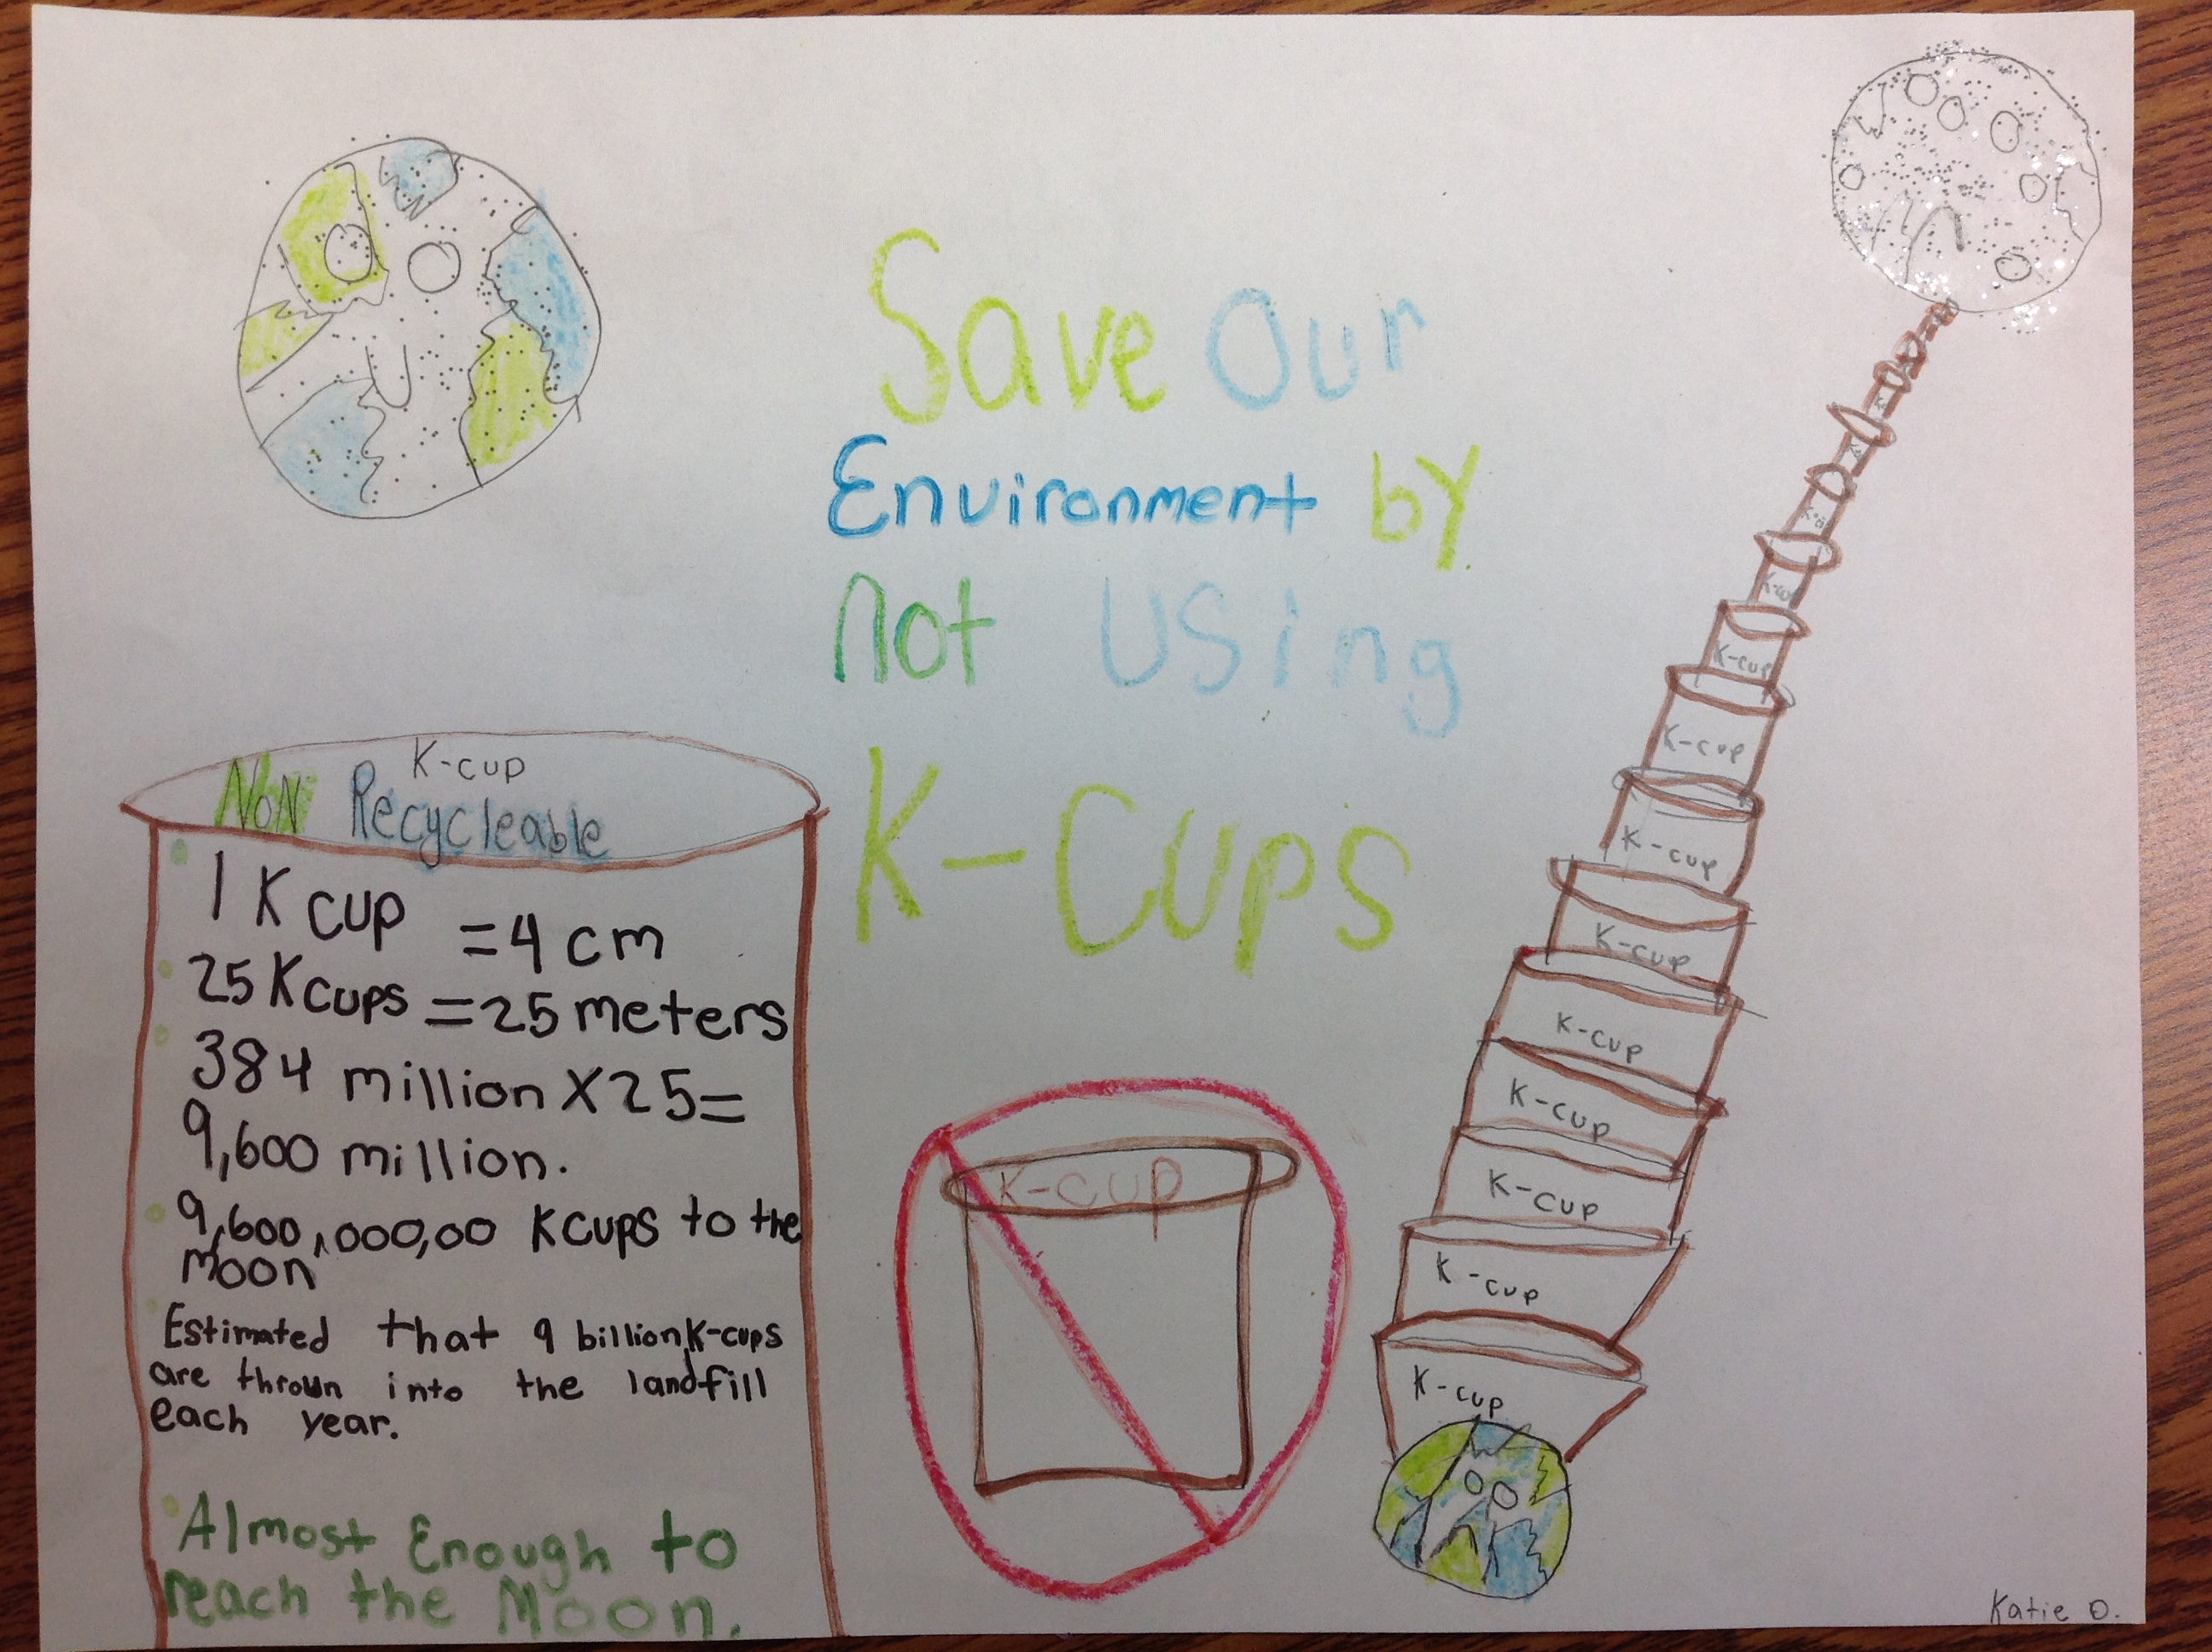 Save Our
Environment by
not using
K-Cups
K-cup
Non Recycleable
1 K cup = 4 cm
25 K cups = 25 meters
384 million X 25 =
9,600 million.
9,600,000,00 K cups to the
moon
Estimated that 9 billion K-cups
are thrown into the landfill
each year.
Almost Enough to
reach the Moon.
K-cup
K-cup
K-cup
K-cup
K-cup
K-cup
K-cup
K-cup
K-cup
K-cup
K-cup
Katie O.